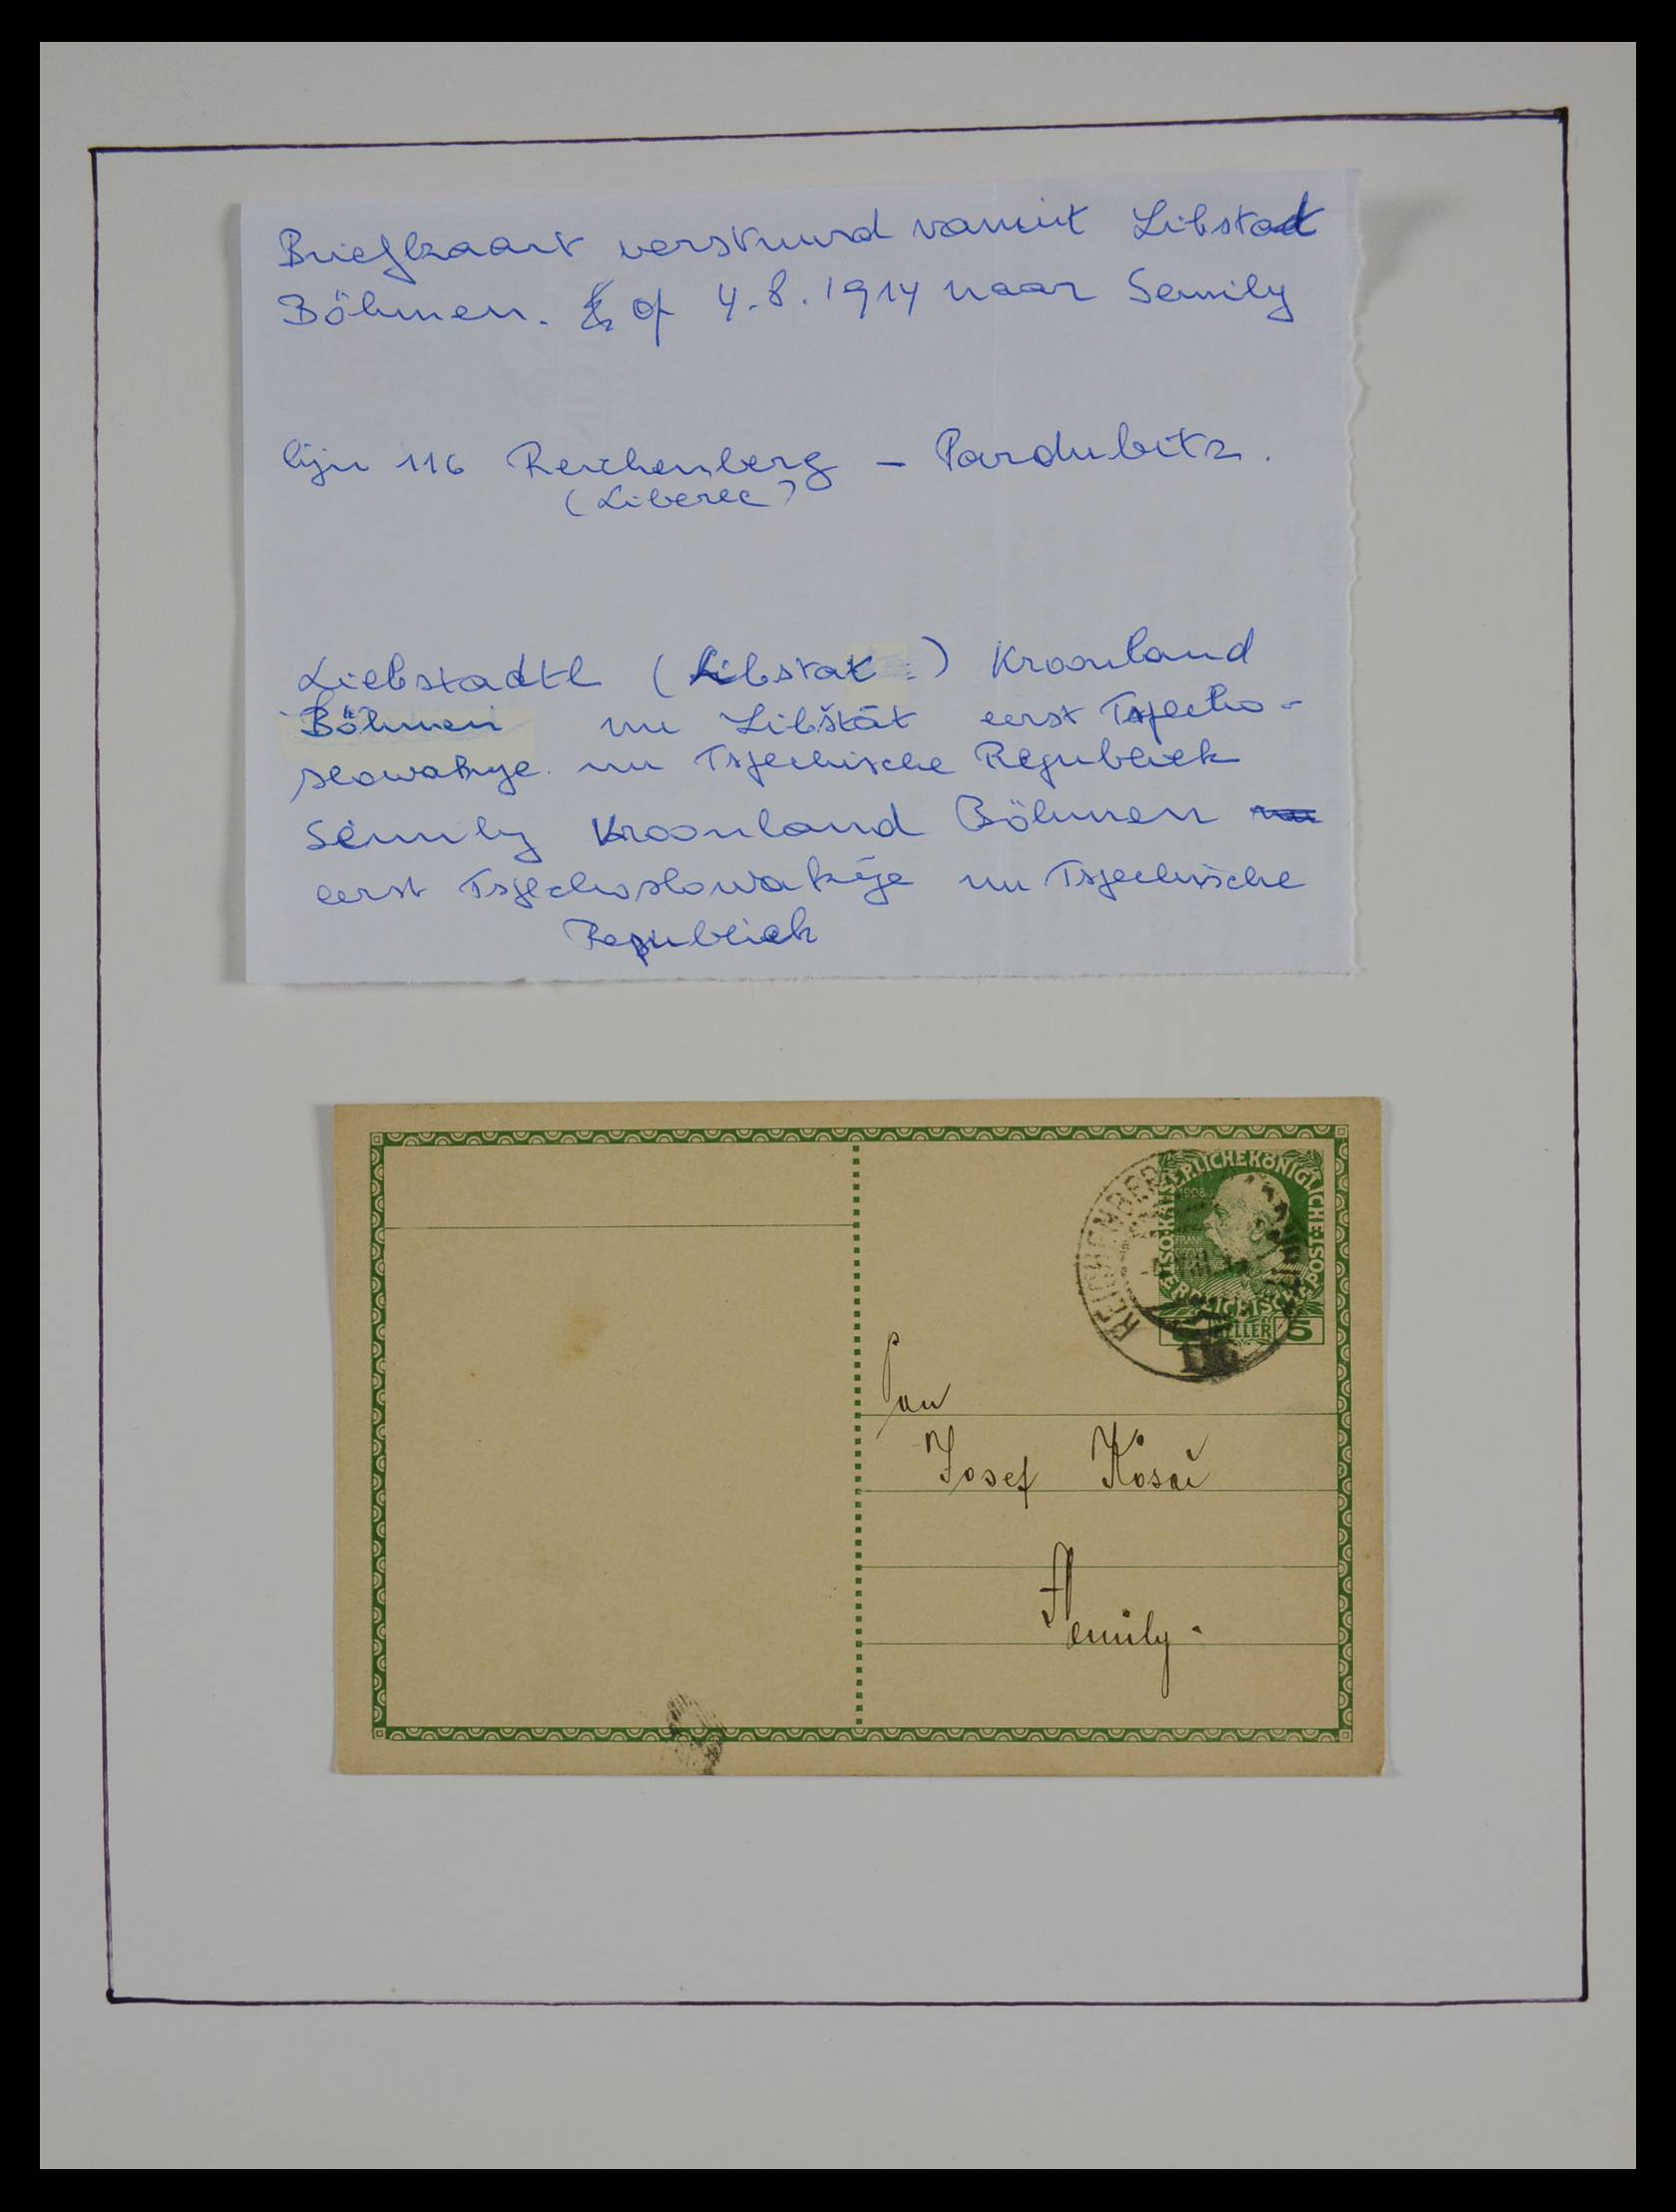 Briefkaart verstuurd vanuit Libstadt
Böhmen. op 4.8.1914 naar Semily
lijn 116 Reichenberg – Pardubitz.
(Liberec)
Liebstadtl (Libstat) Kroonland
Böhmen nu Libštát eerst Tsjecho-
slowakije. nu Tsjechische Republiek
Semily Kroonland Böhmen
eerst Tsjechoslowakije nu Tsjechische
Republiek
KAISERLICHEKÖNIGLICHE
POST
1908
REICHENBERG
HELLER 5
116
Pan
Josef
Semily.